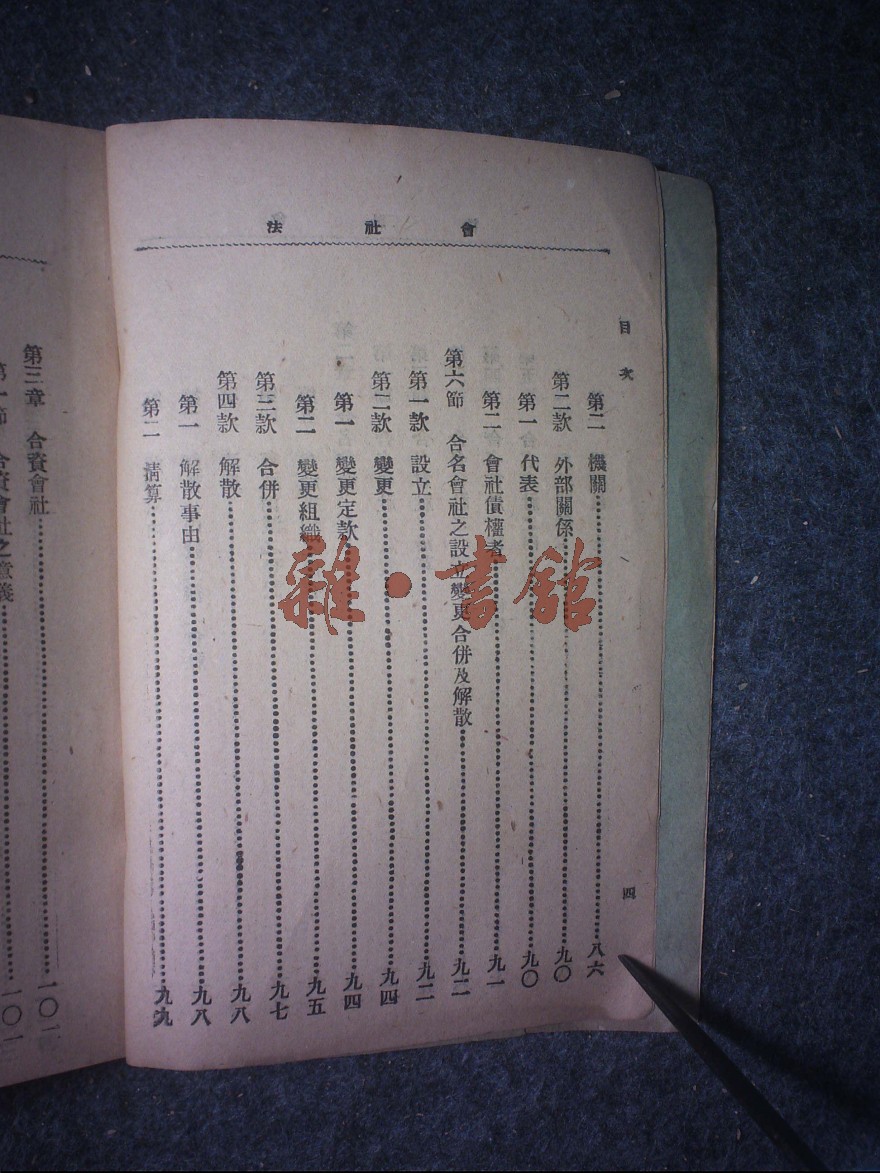 會社法
目次 四
第二 機關……八六
第二款 外部關係……九〇
第一 代表……九〇
第二 會社債權者……九一
第六節 合名會社之設立變更合併及解散……九二
第一款 設立……九二
第二款 變更……九四
第一 變更定款……九四
第二 變更組織……九五
第三款 合併……九七
第四款 解散……九八
第一 解散事由……九八
第二 清算……九九
第三章 合資會社……一〇一
第一節 合資會社之意義……一〇一
雜·書館